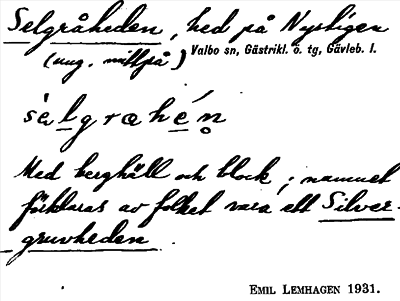 Selgråheden, hed på Nystigen
(ung. mitt på) Valbo sn, Gästrikl. ö. tg, Gävleb. l.
sèlgrahén̥
Med berghäll och block; namnet
förklaras av folket vara ett Silver-
gruvheden.
EMIL LEMHAGEN 1931.